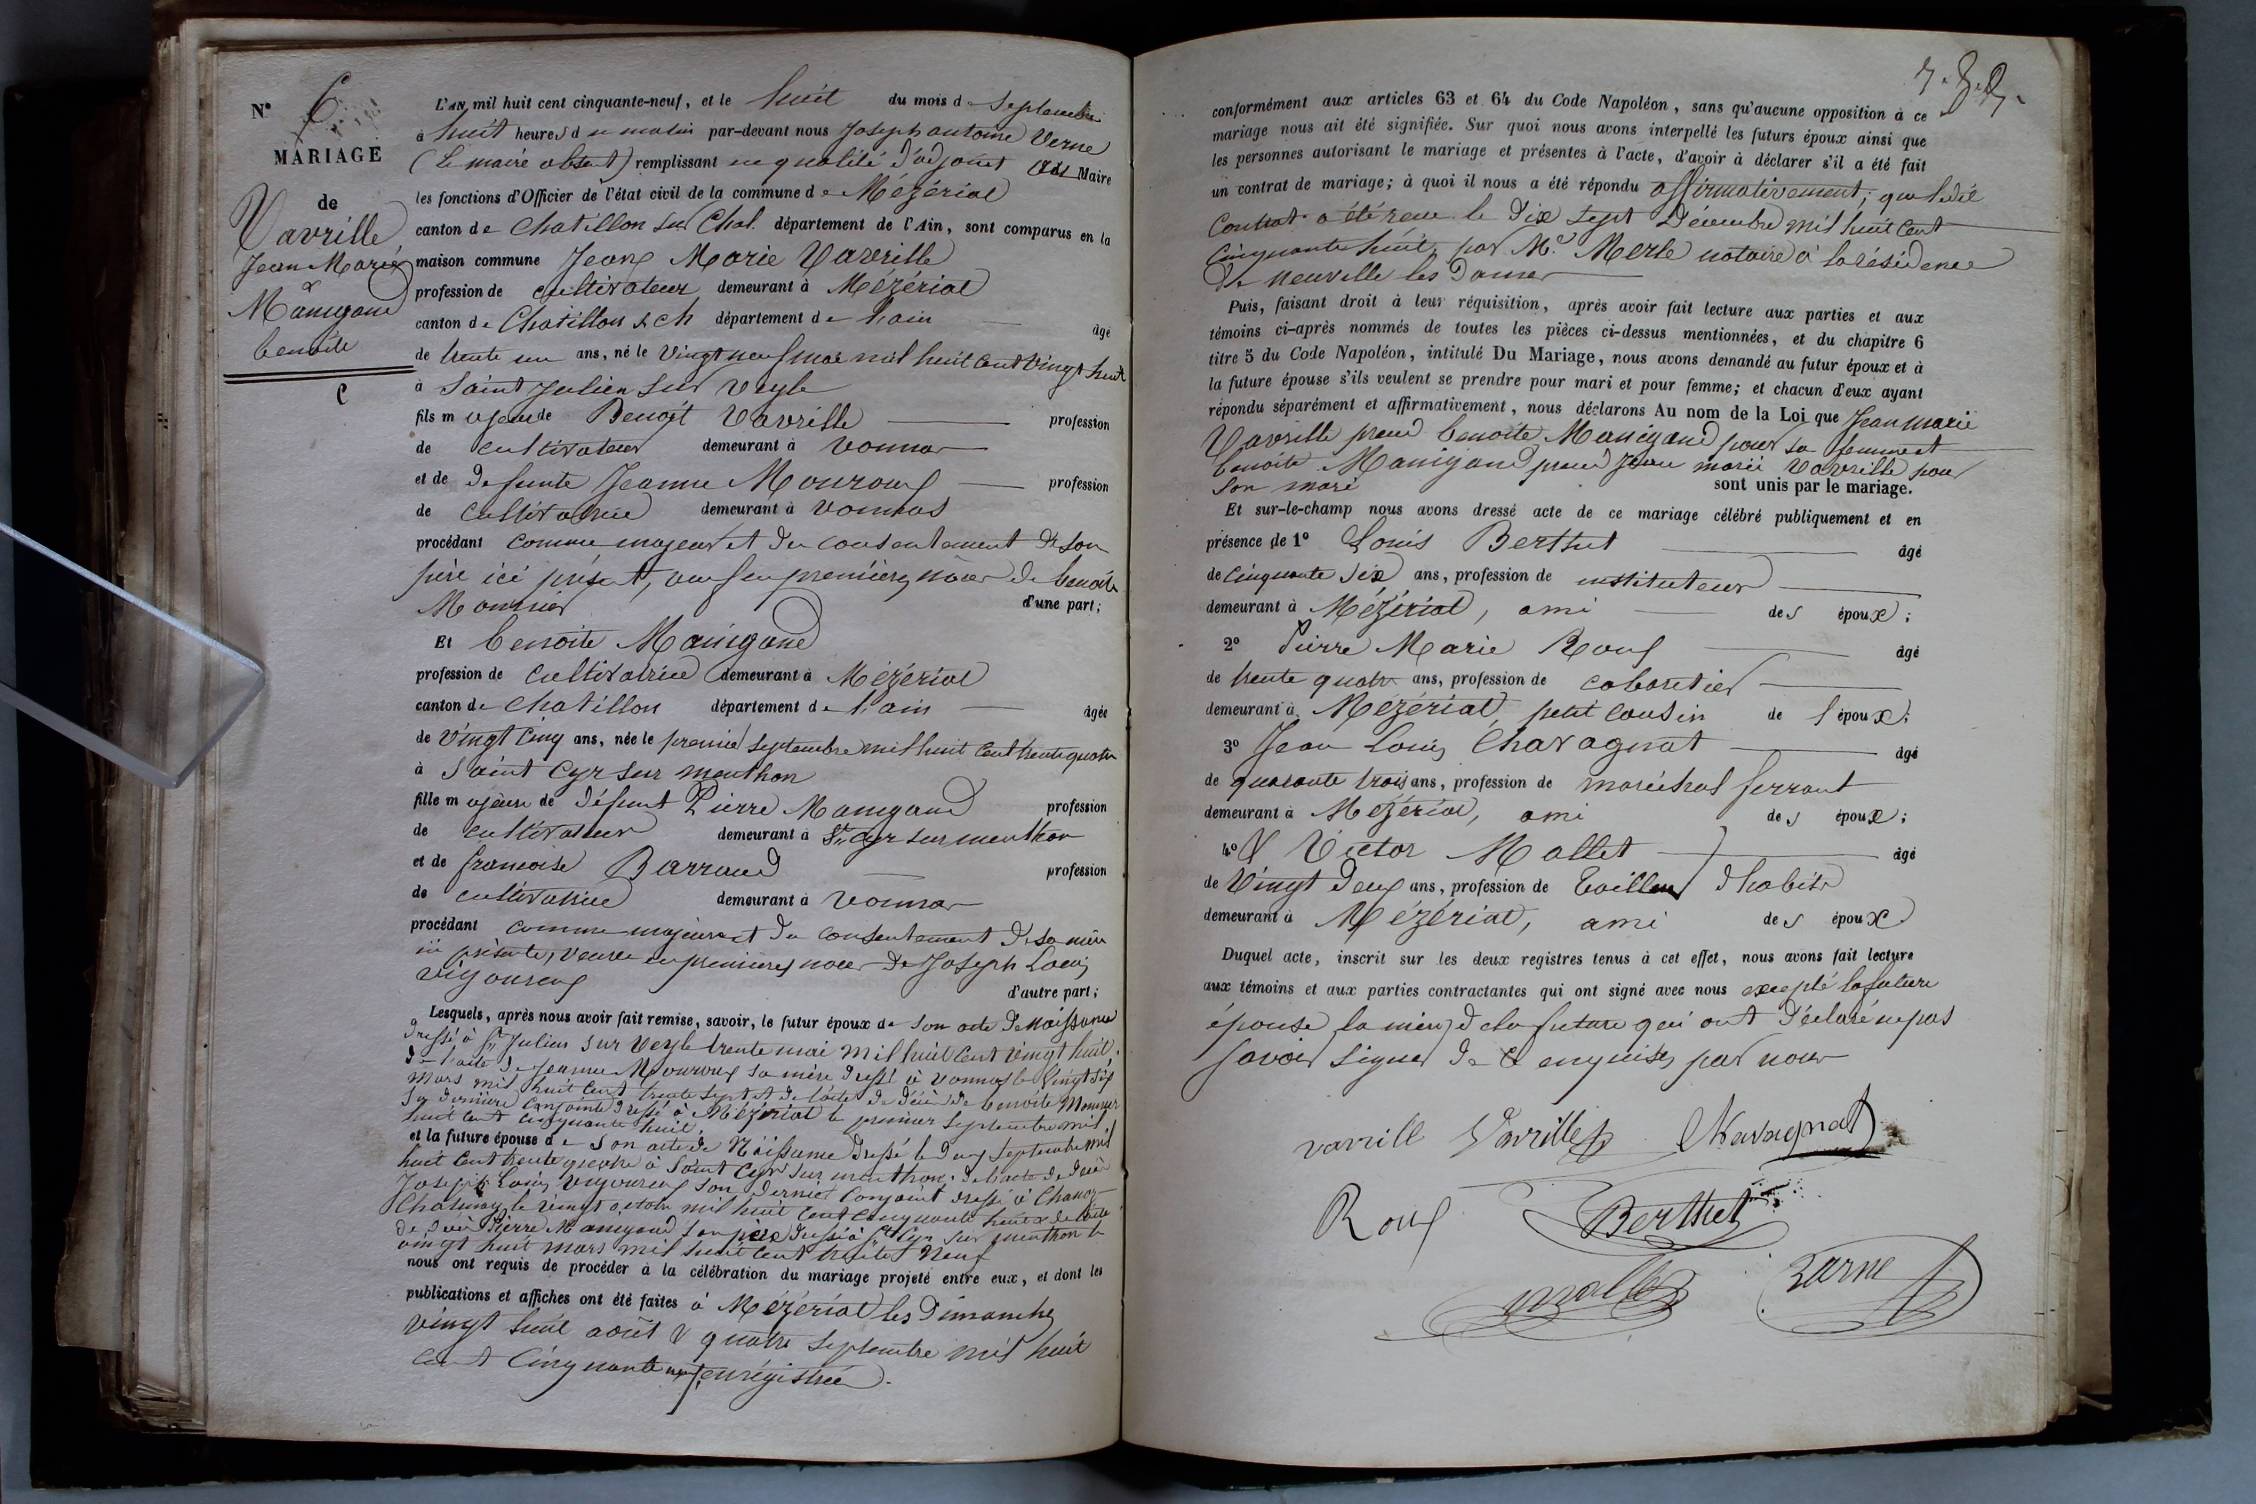 N° 6
MARIAGE
de
Vavrille
Jean Marie
&
Manigand
benoite
L'AN mil huit cent cinquante-neuf, et le huit du mois de Septembre
à huit heures du matin par-devant nous Joseph antoine Verne
(le maire absent) remplissant en qualité d'adjoint au Maire
les fonctions d'Officier de l'état civil de la commune de Mézériat
canton de Chatillon sur Chal. département de l'Ain, sont comparus en la
maison commune Jean Marie Vavrille
profession de cultivateur demeurant à Mézériat
canton de Chatillon s ch département de l'ain âgé
de trente un ans, né le Vingt neuf mai mil huit cent Vingt huit
à Saint Julien sur Veyle
fils majeur de Benoît Vavrille profession
de cultivateur demeurant à Vonnas
et de defunte Jeanne Mouroux profession
de cultivatrice demeurant à Vonnas
procédant comme majeur et du consentement de son
père ici présent, veuf en premières noces de benoite
Monnier d'une part;
Et benoite Manigand
profession de cultivatrice demeurant à Mézériat
canton de Chatillon département de l'ain âgée
de Vingt Cinq ans, née le premier Septembre mil huit cent trente quatre
à Saint Cyr sur menthon
fille majeure de défunt Pierre Manigand profession
de cultivateur demeurant à St Cyr sur menthon
et de francoise Barraud profession
de cultivatrice demeurant à Vonnas
procédant comme majeure et du consentement de sa mère
ici présente, veuve en premières noces de Joseph Louis
Vigoureux d'autre part;
Lesquels, après nous avoir fait remise, savoir, le futur époux de son acte de Naissance
dressé à St Julien sur Veyle trente mai mil huit cent Vingt huit.
de l'acte de Jeanne Mouroux sa mère dressé à Vonnas le Vingt six
Mars mil huit cent trente sept et de l'acte de décès de benoite Monnier
sa dernière conjointe dressé à Mézériat le premier Septembre mil
huit cent cinquante huit.
et la future épouse de son acte de Naissance dressé le deux Septembre mil
huit cent trente quatre à Saint Cyr sur menthon; de l'acte de décès
Joseph Louis Vigoureux son dernier conjoint dressé à Chanoz
Chatenay le vingt octobre mil huit cent cinquante huit & de l'acte
de décès Pierre Manigand son père dressé à St Cyr sur menthon le
vingt huit mars mil huit cent trente Neuf
nous ont requis de procéder à la célébration du mariage projeté entre eux, et dont les
publications et affiches ont été faites à Mézériat les Dimanches
vingt huit août & quatre Septembre mil huit
cent Cinquante neuf, enrégistrée.
conformément aux articles 63 et 64 du Code Napoléon, sans qu'aucune opposition à ce
mariage nous ait été signifiée. Sur quoi nous avons interpellé les futurs époux ainsi que
les personnes autorisant le mariage et présentes à l'acte, d'avoir à déclarer s'il a été fait
un contrat de mariage; à quoi il nous a été répondu affirmativement; que ledit
Contrat a été reçu le dix sept Décembre mil huit cent
Cinquante huit, par Me Merle notaire à la résidence
de neuville les Dames
Puis, faisant droit à leur réquisition, après avoir fait lecture aux parties et aux
témoins ci-après nommés de toutes les pièces ci-dessus mentionnées, et du chapitre 6
titre 5 du Code Napoléon, intitulé Du Mariage, nous avons demandé au futur époux et à
la future épouse s'ils veulent se prendre pour mari et pour femme; et chacun d'eux ayant
répondu séparément et affirmativement, nous déclarons Au nom de la Loi que Jean marie
Vavrille prend benoite Manigand pour sa femme et
benoite Manigand prend Jean marie Vavrille pour
son mari sont unis par le mariage.
Et sur-le-champ nous avons dressé acte de ce mariage célébré publiquement et en
présence de 1° Louis Berthet âgé
de cinquante six ans, profession de instituteur
demeurant à Mézériat, ami des époux;
2° Pierre Marie Roux âgé
de trente quatre ans, profession de cabaretier
demeurant à Mézériat, petit cousin de l'époux;
3° Jean Louis Chavagnat âgé
de quarante trois ans, profession de maréchal ferrant
demeurant à Mézériat, ami des époux;
4° & Victor Mallet âgé
de Vingt deux ans, profession de tailleur d'habits
demeurant à Mézériat, ami des époux
Duquel acte, inscrit sur les deux registres tenus à cet effet, nous avons fait lecture
aux témoins et aux parties contractantes qui ont signé avec nous excepté la future
épouse, la mère de la future qui ont déclaré ne pas
savoir signer de ce enquises par nous
vavrille Vavrille Chavagnat
Roux Berthet
mallet Varne